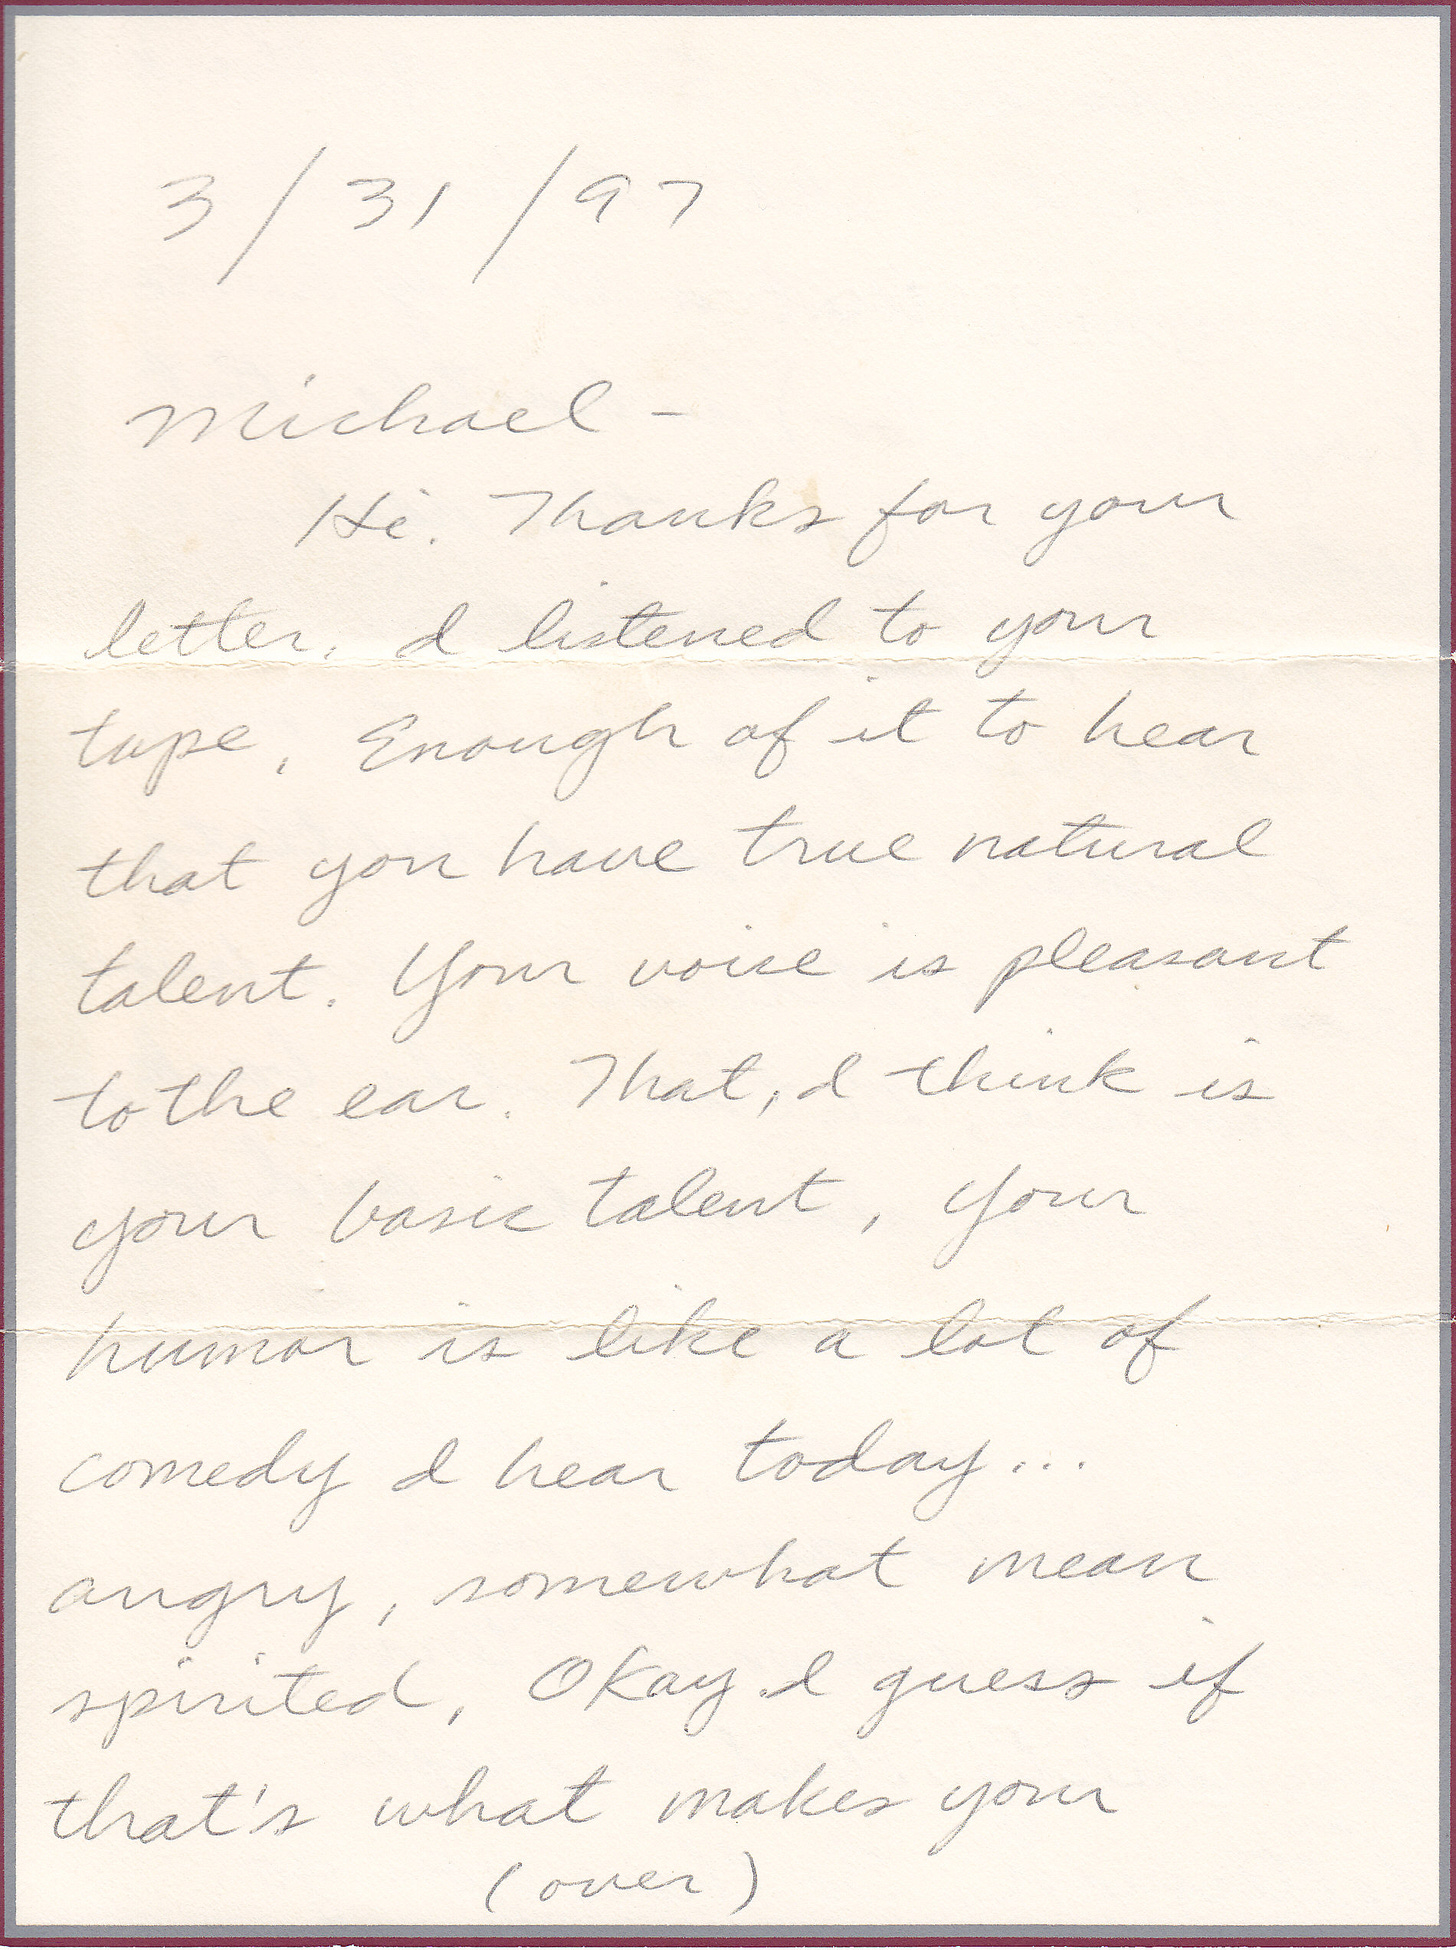 3/31/97
Michael -
Hi. Thanks for your
letter. I listened to your
tape. Enough of it to hear
that you have true natural
talent. Your voice is pleasant
to the ear. That, I think is
your basic talent, your
humor is like a lot of
comedy I hear today...
angry, somewhat mean
spirited, Okay I guess if
that's what makes your
(over)